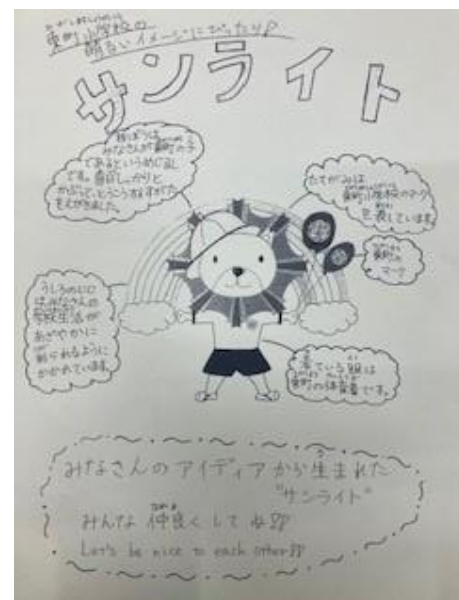 東町小学校の
明るいイメージにぴったり♪
サンライト
みなさんが東町の子
であるというめじるし
です。毎日しっかりと
かぶって、とうこうするすがた
をえがきました。
たてがみは
東町小学校のマーク
を表しています。
東町の
マーク
うしろのにじ
はみなさんの
学校生活が
あざやかに
彩られるように
かかれています。
着ている服は
東町の体育着です。
みなさんのアイディアから生まれた
"サンライト"
みんな仲良くしてね♪
Let's be nice to each other♪